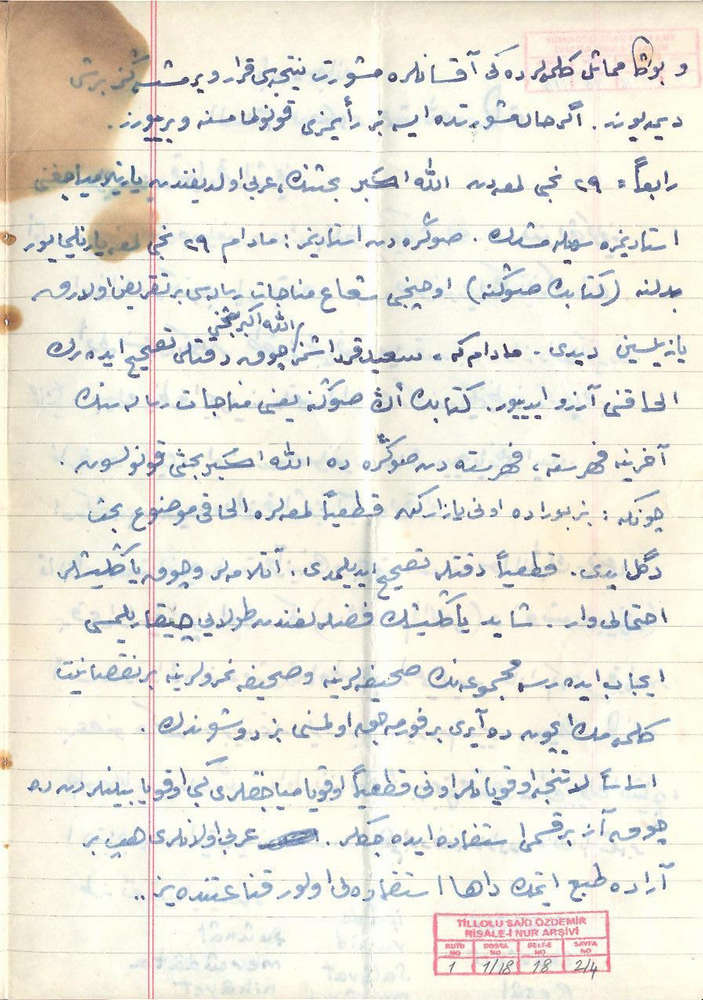 و بوڭا مماثل كلمه‌لرده كى آقسانلره مشورت نتيجه‌سى قرار ويرمشسه‌ڭز برشى
ديمه‌يورز. اگر حال مشورتده ايسه بز رأيمزى قونولماسنه ويرييورز.
رابعاً = ٢٩ نجى لمعه‌دن الله اكبر بحثنڭ، عربى اولديغندن يازيلميه‌جغنى
استاديمزه سويله‌مشدك. صوڭره دن استاديمز: مادام ٢٩ نجى لمعه يازيلمايور
بدلنه (كتابڭ صوڭنه) اوچنجى شعاع مناجات رساله‌سى بر تقريض اولارق
يازيلسين ديدى. مادام كه، سعيد قرداشمز الله اكبر بحثنى چوق دقتلى تصحيح ايده‌رك
الحاقنى آرزو ايدييور. كتابڭ اڭ صوڭنه يعنى مناجات رساله‌سنڭ
آخرينه فهرسته، فهرسته دن صوڭره ده الله اكبر بحثى قونولسون.
چونكه: بز بوراده اونى يازاركن قطعياً لمعه‌لره الحاقى موضوع بحث
دگل ايدى. قطعياً دقتله تصحيح ايديلمدى. آتلامه‌لر و چوق ياڭليشلر
احتمالى وار. شايد ياڭليشڭ فضله‌لغندن طولايى چيقاريلمسى
ايجاب ايدرسه مجموعه‌نڭ صحيفه‌لرينه و صحيفه نمرولرينه بر نقصانيت
كلمه‌مك ايچون ده آيرى بر فورمه‌جق اولمسنى بز دوشوندك.
اساساً لاتنجه اوقويانلر اونى قطعياً اوقوياميه‌جقلرى گبى اوقويابيلنلردن ده
چوق آز بر قسمى استفاده ايده‌جكلر. عربى اولانلرى هپ بر
آراده طبع ايتمك داها استفاده‌لى اولور قناعتنده‌يز..
TİLLOLU SAİD ÖZDEMİR
RİSALE-İ NUR ARŞİVİ
KUTU NO DOSYA NO BELGE NO SAYFA NO
1 1/18 18 2/4